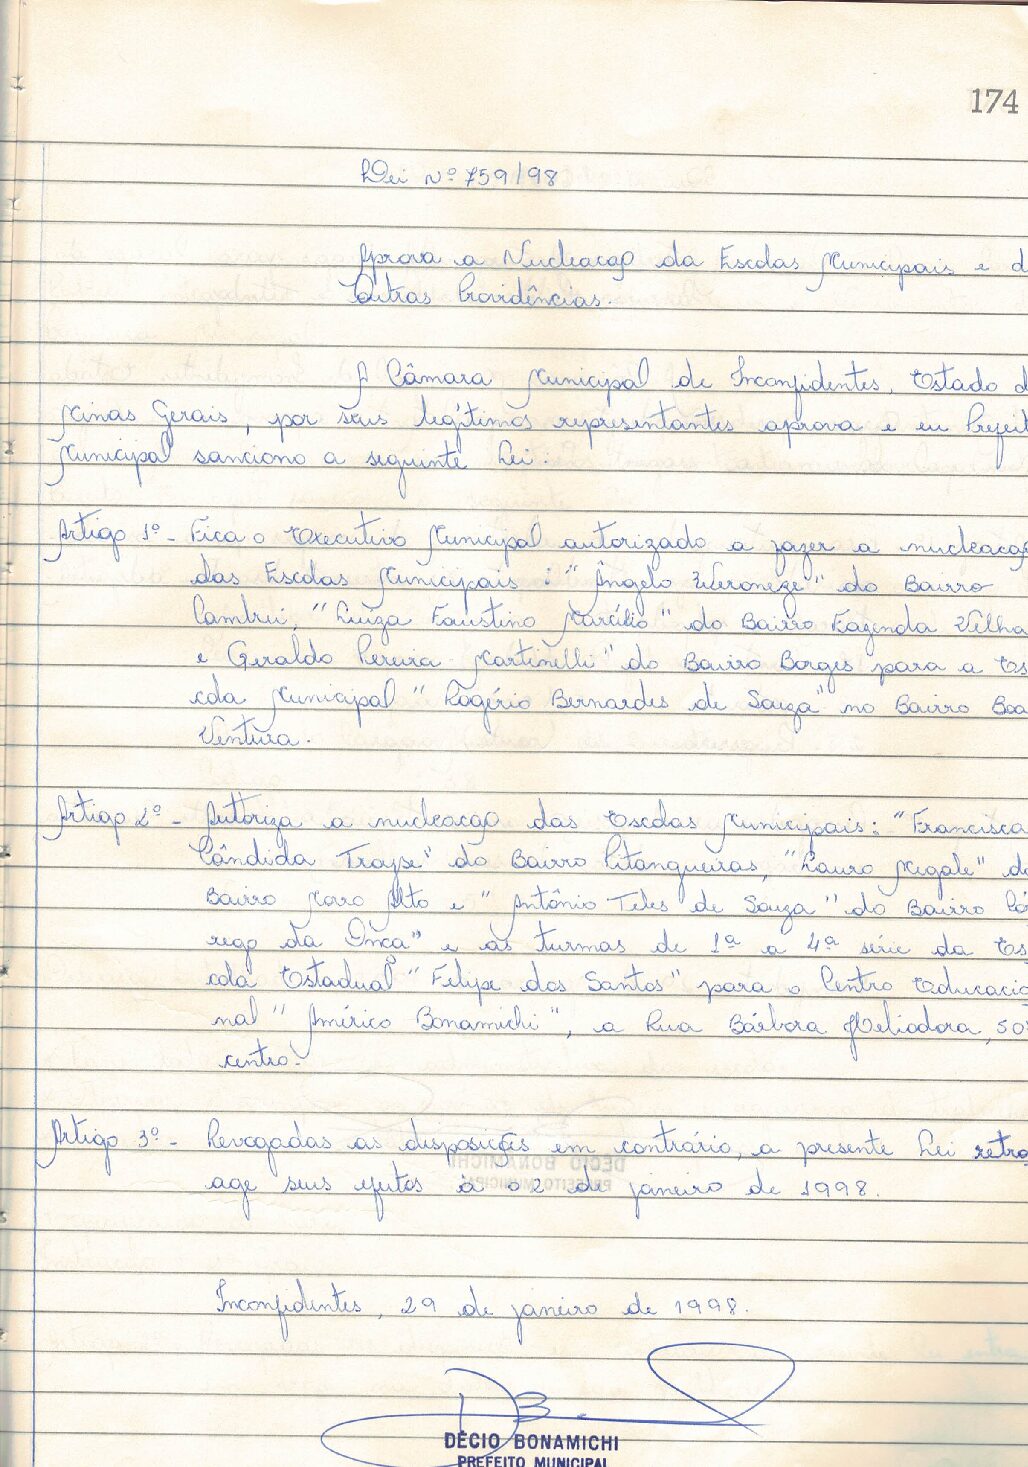 174
Lei Nº 759/98
Aprova a Nucleação da Escolas Municipais e d
Outras Providências.
A Câmara Municipal de Inconfidentes, Estado d
Minas Gerais, por seus legítimos representantes aprova e eu Prefeit
Municipal sanciono a seguinte Lei:
Artigo 1º - Fica o Executivo Municipal autorizado a fazer a nucleação
das Escolas Municipais: "Ângelo Veroneze" do Bairro
Cambui, "Luiza Faustino Marcílio" do Bairro Fazenda Velha
e Geraldo Pereira Martinelli" do Bairro Borges para a Es
cola Municipal "Rogério Bernardes de Souza" no Bairro Boa
Ventura.
Artigo 2º - Autoriza a nucleação das Escolas Municipais: "Francisca
Cândida Troyse" do Bairro Pitangueiras, "Lauro Megale" do
Bairro Morro Alto e "Antônio Teles de Souza" do Bairro Cór
rego da Onça" e as turmas de 1ª a 4ª série da Es
cola Estadual "Felipe dos Santos" para o Centro Educacio
nal "Américo Bonamichi", a Rua Bárbora Heliodora, 50
centro.
Artigo 3º - Revogadas as disposições em contrário, a presente Lei retro
age seus efeitos à 02 de janeiro de 1998.
Inconfidentes, 29 de janeiro de 1998.
DÉCIO BONAMICHI
PREFEITO MUNICIPAL